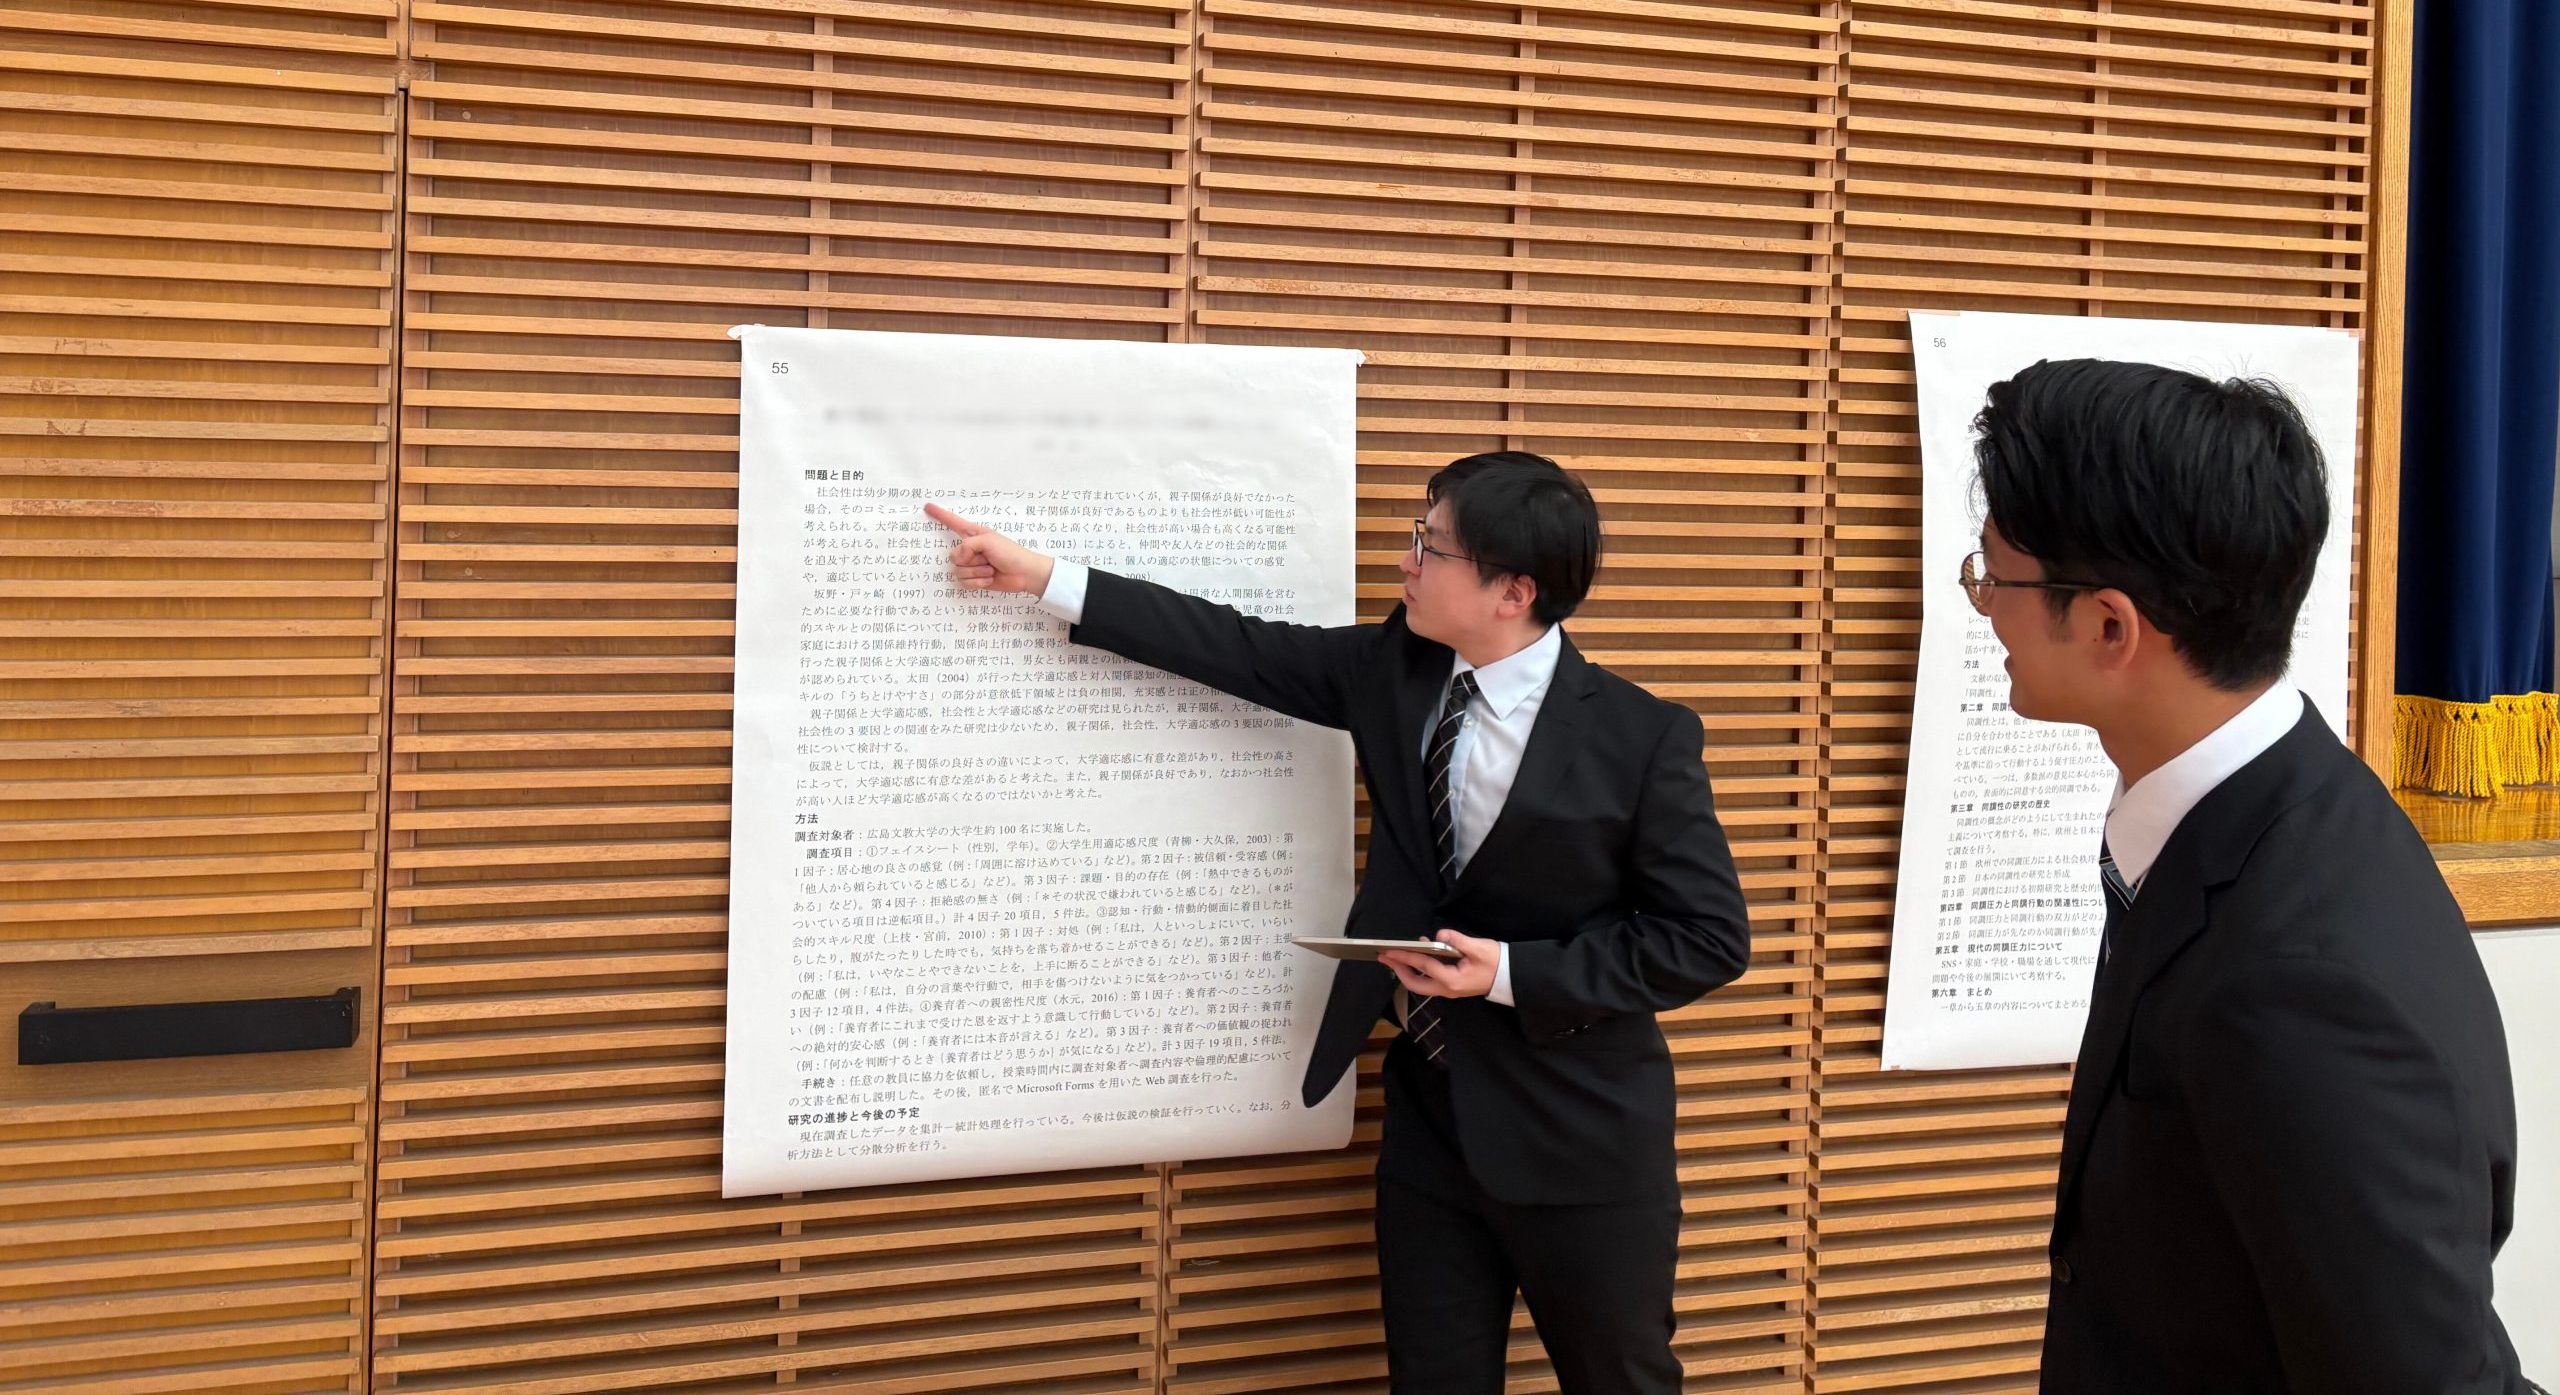 55
問題と目的
社会性は幼少期の親とのコミュニケーションなどで育まれていくが，親子関係が良好でなかった
場合，そのコミュニケーションが少なく，親子関係が良好であるものよりも社会性が低い可能性が
考えられる。大学適応感は 関係が良好であると高くなり，社会性が高い場合も高くなる可能性
が考えられる。社会性とは， 辞典（2013）によると，仲間や友人などの社会的な関係
を追及するために必要なもの 適応感とは，個人の適応の状態についての感覚
や，適応しているという感覚 2008）．
坂野・戸ヶ崎（1997）の研究では，小学生 は円滑な人間関係を営む
ために必要な行動であるという結果が出ており， 児童の社会
的スキルとの関係については，分散分析の結果，母
家庭における関係維持行動，関係向上行動の獲得が
行った親子関係と大学適応感の研究では，男女とも両親との信頼
が認められている。太田（2004）が行った大学適応感と対人関係認知の関連
キルの「うちとけやすさ」の部分が意欲低下領域とは負の相関，充実感とは正の相関
親子関係と大学適応感，社会性と大学適応感などの研究は見られたが，親子関係，大学適応
社会性の3要因との関連をみた研究は少ないため，親子関係，社会性，大学適応感の3要因の関係
性について検討する。
仮説としては，親子関係の良好さの違いによって，大学適応感に有意な差があり，社会性の高さ
によって，大学適応感に有意な差があると考えた。また，親子関係が良好であり，なおかつ社会性
が高い人ほど大学適応感が高くなるのではないかと考えた。
方法
調査対象者：広島文教大学の大学生約100名に実施した。
調査項目：①フェイスシート（性別，学年）。②大学生用適応感尺度（青柳・大久保，2003）：第
1因子：居心地の良さの感覚（例：「周囲に溶け込めている」など）。第2因子：被信頼・受容感（例：
「他人から頼られていると感じる」など）。第3因子：課題・目的の存在（例：「熱中できるものが
ある」など）。第4因子：拒絶感の無さ（例：「＊その状況で嫌われていると感じる」など）。（＊が
ついている項目は逆転項目。）計4因子20項目，5件法。③認知・行動・情動的側面に着目した社
会的スキル尺度（上枝・宮前，2010）：第1因子：対処（例：「私は，人といっしょにいて，いらい
らしたり，腹がたったりした時でも，気持ちを落ち着かせることができる」など）。第2因子：主張
（例：「私は，いやなことやできないことを，上手に断ることができる」など）。第3因子：他者へ
の配慮（例：「私は，自分の言葉や行動で，相手を傷つけないように気をつかっている」など）。計
3因子12項目，4件法。④養育者への親密性尺度（水元，2016）：第1因子：養育者へのこころづか
い（例：「養育者にこれまで受けた恩を返すよう意識して行動している」など）。第2因子：養育者
への絶対的安心感（例：「養育者には本音が言える」など）。第3因子：養育者への価値観の捉われ
（例：「何かを判断するとき｛養育者はどう思うか｝が気になる」など）。計3因子19項目，5件法。
手続き：任意の教員に協力を依頼し，授業時間内に調査対象者へ調査内容や倫理的配慮について
の文書を配布し説明した。その後，匿名でMicrosoft Formsを用いたWeb調査を行った。
研究の進捗と今後の予定
現在調査したデータを集計－統計処理を行っている。今後は仮説の検証を行っていく。なお，分
析方法として分散分析を行う。
56
レベル
的に見
活かす事を
方法
文献の収集
「同調性」，
第二章 同調性
同調性とは，他者
に自分を合わせることである（太田 199
として流行に乗ることがあげられる。青木
や基準に沿って行動するよう促す圧力のこと
べている。一つは，多数派の意見に本心から同
ものの，表面的に同意する公的同調である。
第三章 同調性の研究の歴史
同調性の概念がどのようにして生まれたの
主義について考察する。特に，欧州と日本に
て調査を行う。
第1節 欧州での同調圧力による社会秩序
第2節 日本の同調性の研究と形成
第3節 同調性における初期研究と歴史的
第四章 同調圧力と同調行動の関連性につい
第1節 同調圧力と同調行動の双方がどのよ
第2節 同調圧力が先なのか同調行動が先
第五章 現代の同調圧力について
SNS・家庭・学校・職場を通して現代に
問題や今後の展開にいて考察する。
第六章 まとめ
一章から五章の内容についてまとめる